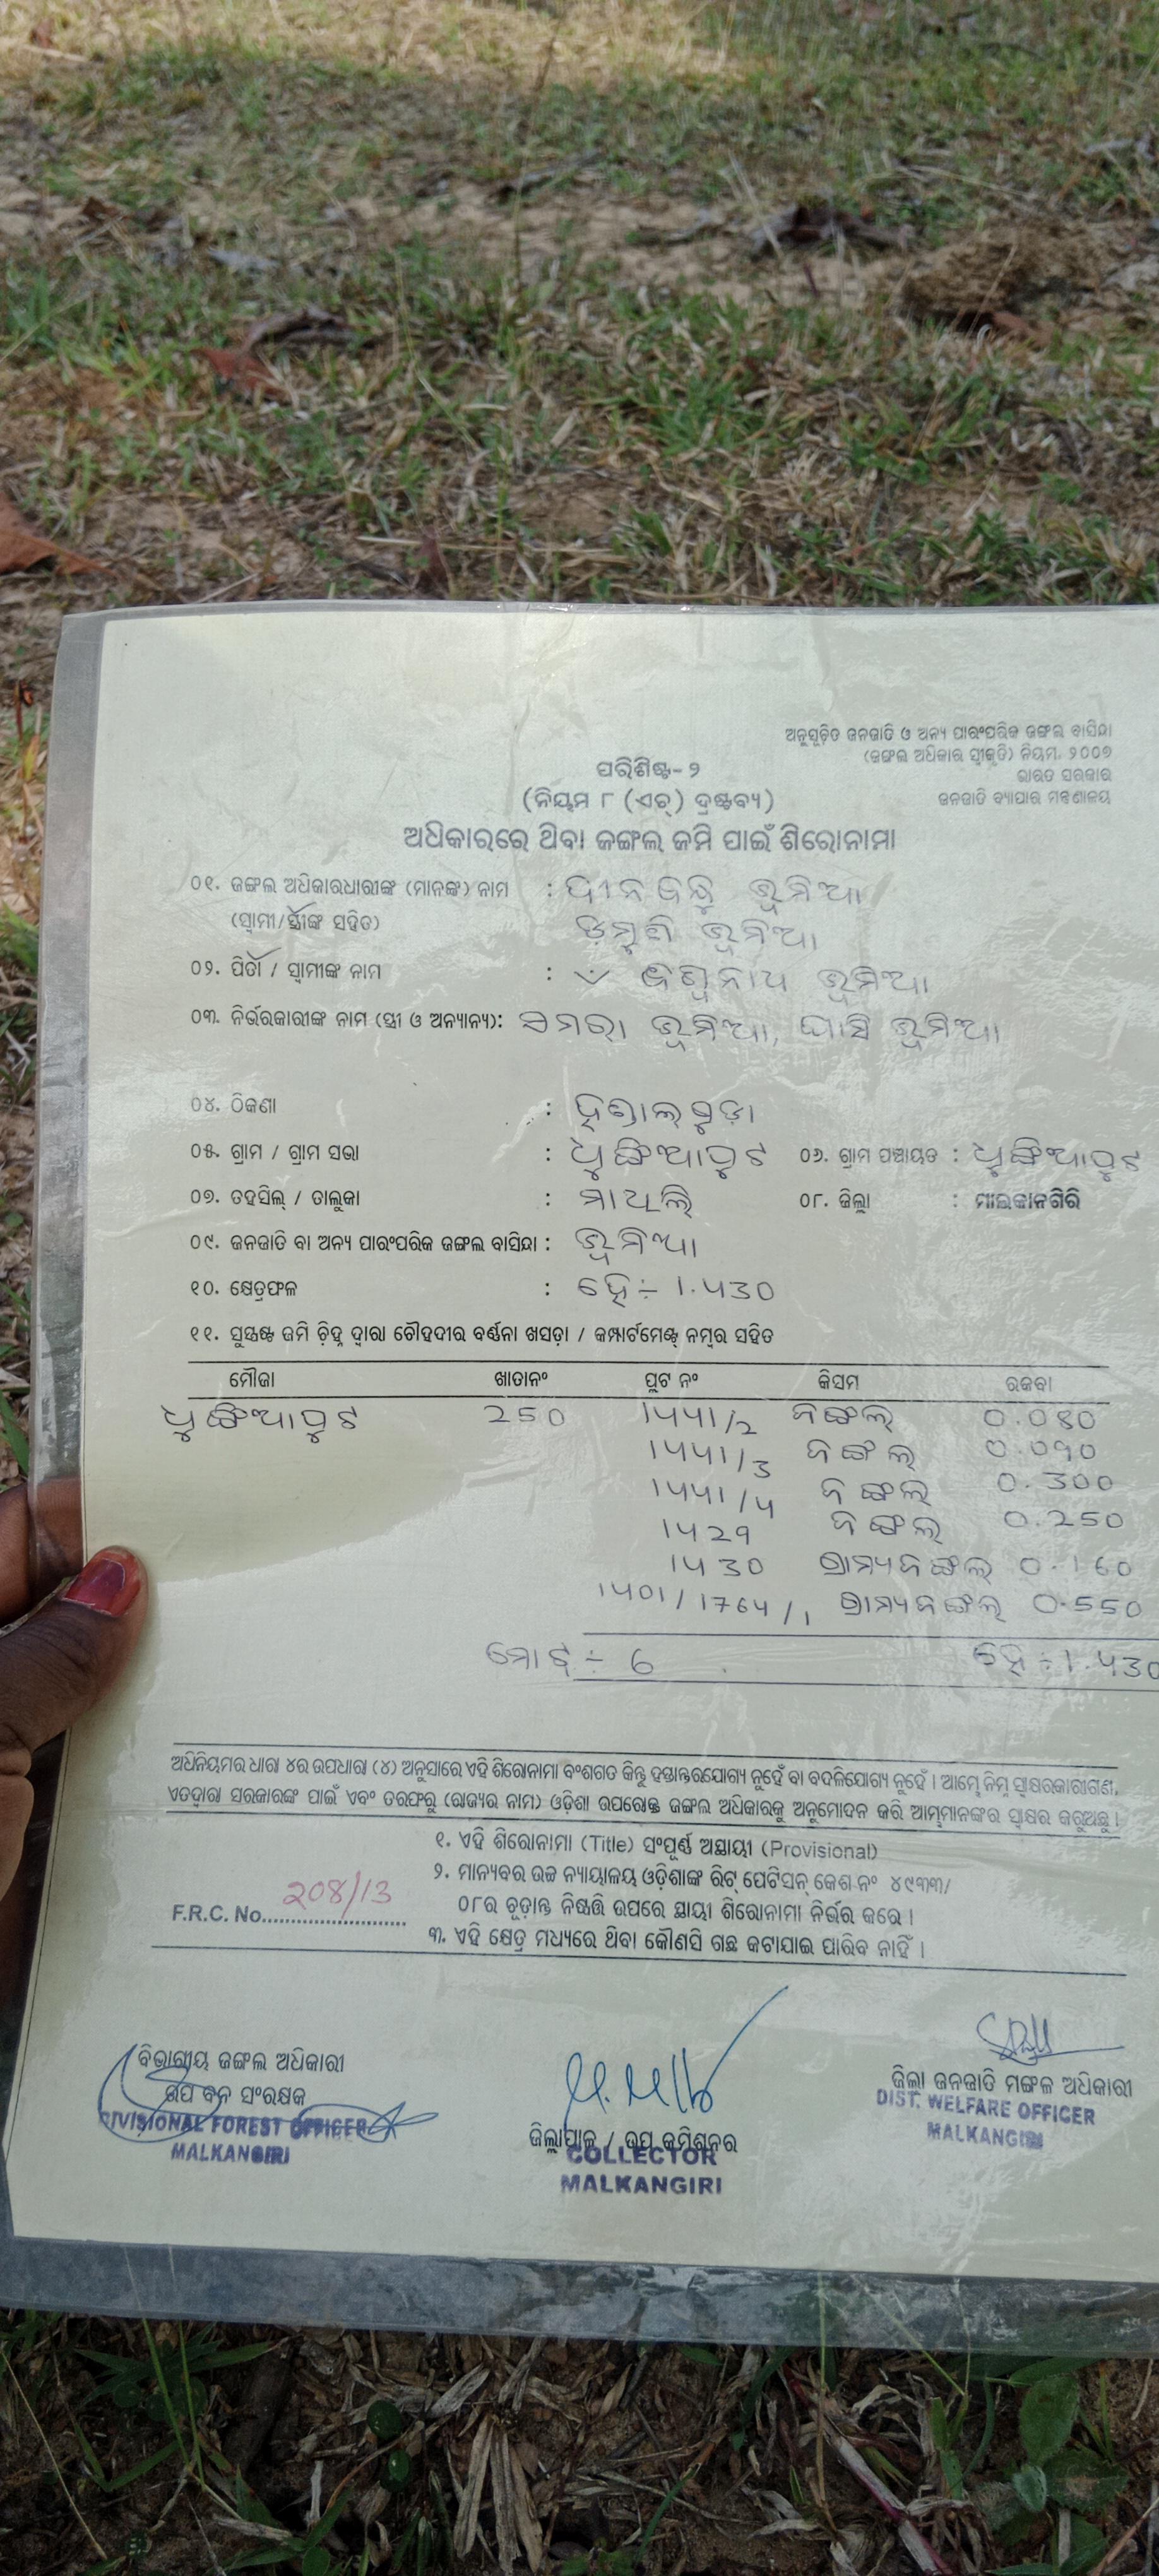 ଅନୁସୂଚିତ ଜନଜାତି ଓ ଅନ୍ୟ ପାରଂପରିକ ଜଙ୍ଗଲ ବାସିନ୍ଦା
(ଜଙ୍ଗଲ ଅଧିକାର ସ୍ୱୀକୃତି) ନିୟମ, ୨୦୦୭
ଭାରତ ସରକାର
ଜନଜାତି ବ୍ୟାପାର ମନ୍ତ୍ରଣାଳୟ
ପରିଶିଷ୍ଟ- ୨
(ନିୟମ ୮ (ଏଚ୍) ଦ୍ରଷ୍ଟବ୍ୟ)
ଅଧିକାରରେ ଥିବା ଜଙ୍ଗଲ ଜମି ପାଇଁ ଶିରୋନାମା
୦୧. ଜଙ୍ଗଲ ଅଧିକାରଧାରୀଙ୍କ (ମାନଙ୍କ) ନାମ : ଦୀନବନ୍ଧୁ ଭୂମିଆ
(ସ୍ୱାମୀ/ସ୍ତ୍ରୀଙ୍କ ସହିତ) ଭୂମିଆ
୦୨. ପିତା / ସ୍ୱାମୀଙ୍କ ନାମ : ଭୂମିଆ
୦୩. ନିର୍ଭରକାରୀଙ୍କ ନାମ (ସ୍ତ୍ରୀ ଓ ଅନ୍ୟାନ୍ୟ): ଭୂମିଆ, ଘାସି ଭୂମିଆ
୦୪. ଠିକଣା :
୦୫. ଗ୍ରାମ / ଗ୍ରାମ ସଭା : ଧୁଙ୍ଗିଆପୁଟ ୦୬. ଗ୍ରାମ ପଞ୍ଚାୟତ : ଧୁଙ୍ଗିଆପୁଟ
୦୭. ତହସିଲ୍ / ତାଲୁକା : ମାଥିଲି ୦୮. ଜିଲ୍ଲା : ମାଲକାନଗିରି
୦୯. ଜନଜାତି ବା ଅନ୍ୟ ପାରଂପରିକ ଜଙ୍ଗଲ ବାସିନ୍ଦା : ଭୂମିଆ
୧୦. କ୍ଷେତ୍ରଫଳ : ହେ÷ 1.430
୧୧. ସୁସ୍ପଷ୍ଟ ଜମି ଚିହ୍ନ ଦ୍ୱାରା ଚୌହଦୀର ବର୍ଣ୍ଣନା ଖସଡ଼ା / କମ୍ପାର୍ଟମେଣ୍ଟ୍ ନମ୍ବର ସହିତ
ମୌଜା ଖାତାନଂ ପ୍ଲଟ ନଂ କିସମ ରକବା
ଧୁଙ୍ଗିଆପୁଟ 250 1441/2 ଜଙ୍ଗଲ୍ 0.080
1441/3 ଜଙ୍ଗଲ୍ 0.090
1441/4 ଜଙ୍ଗଲ୍ 0.300
1429 ଜଙ୍ଗଲ୍ 0.250
1430 ଗ୍ରାମ୍ୟଜଙ୍ଗଲ୍ 0.160
1401/1764/1 ଗ୍ରାମ୍ୟଜଙ୍ଗଲ୍ 0.550
ମୋଟ୍ ÷ 6 ହେ ÷ 1.430
ଅଧିନିୟମର ଧାରା ୪ର ଉପଧାରା (୪) ଅନୁସାରେ ଏହି ଶିରୋନାମା ବଂଶଗତ କିନ୍ତୁ ହସ୍ତାନ୍ତରଯୋଗ୍ୟ ନୁହେଁ ବା ବଦଳିଯୋଗ୍ୟ ନୁହେଁ । ଆମ୍ଭେ ନିମ୍ନ ସ୍ୱାକ୍ଷରକାରୀଗଣ,
ଏତଦ୍ୱାରା ସରକାରଙ୍କ ପାଇଁ ଏବଂ ତରଫରୁ (ରାଜ୍ୟର ନାମ) ଓଡ଼ିଶା ଉପରୋକ୍ତ ଜଙ୍ଗଲ ଅଧିକାରକୁ ଅନୁମୋଦନ କରି ଆମ୍ଭମାନଙ୍କର ସ୍ୱାକ୍ଷର କରୁଅଛୁ ।
୧. ଏହି ଶିରୋନାମା (Title) ସଂପୂର୍ଣ୍ଣ ଅସ୍ଥାୟୀ (Provisional)
୨. ମାନ୍ୟବର ଉଚ୍ଚ ନ୍ୟାୟାଳୟ ଓଡ଼ିଶାଙ୍କ ରିଟ୍ ପେଟିସନ୍ କେଶ ନଂ ୪୯୩୩/
୦୮ର ଚୂଡ଼ାନ୍ତ ନିଷ୍ପତ୍ତି ଉପରେ ସ୍ଥାୟୀ ଶିରୋନାମା ନିର୍ଭର କରେ ।
F.R.C. No. 208/13
୩. ଏହି କ୍ଷେତ୍ର ମଧ୍ୟରେ ଥିବା କୌଣସି ଗଛ କଟାଯାଇ ପାରିବ ନାହିଁ ।
ବିଭାଗୀୟ ଜଙ୍ଗଲ ଅଧିକାରୀ
ଉପ ବନ ସଂରକ୍ଷକ
DIVISIONAL FOREST OFFICER
MALKANGIRI
ଜିଲ୍ଲାପାଳ / ଉପ କମିଶନର
COLLECTOR
MALKANGIRI
ଜିଲ୍ଲା ଜନଜାତି ମଙ୍ଗଳ ଅଧିକାରୀ
DIST. WELFARE OFFICER
MALKANGIRI